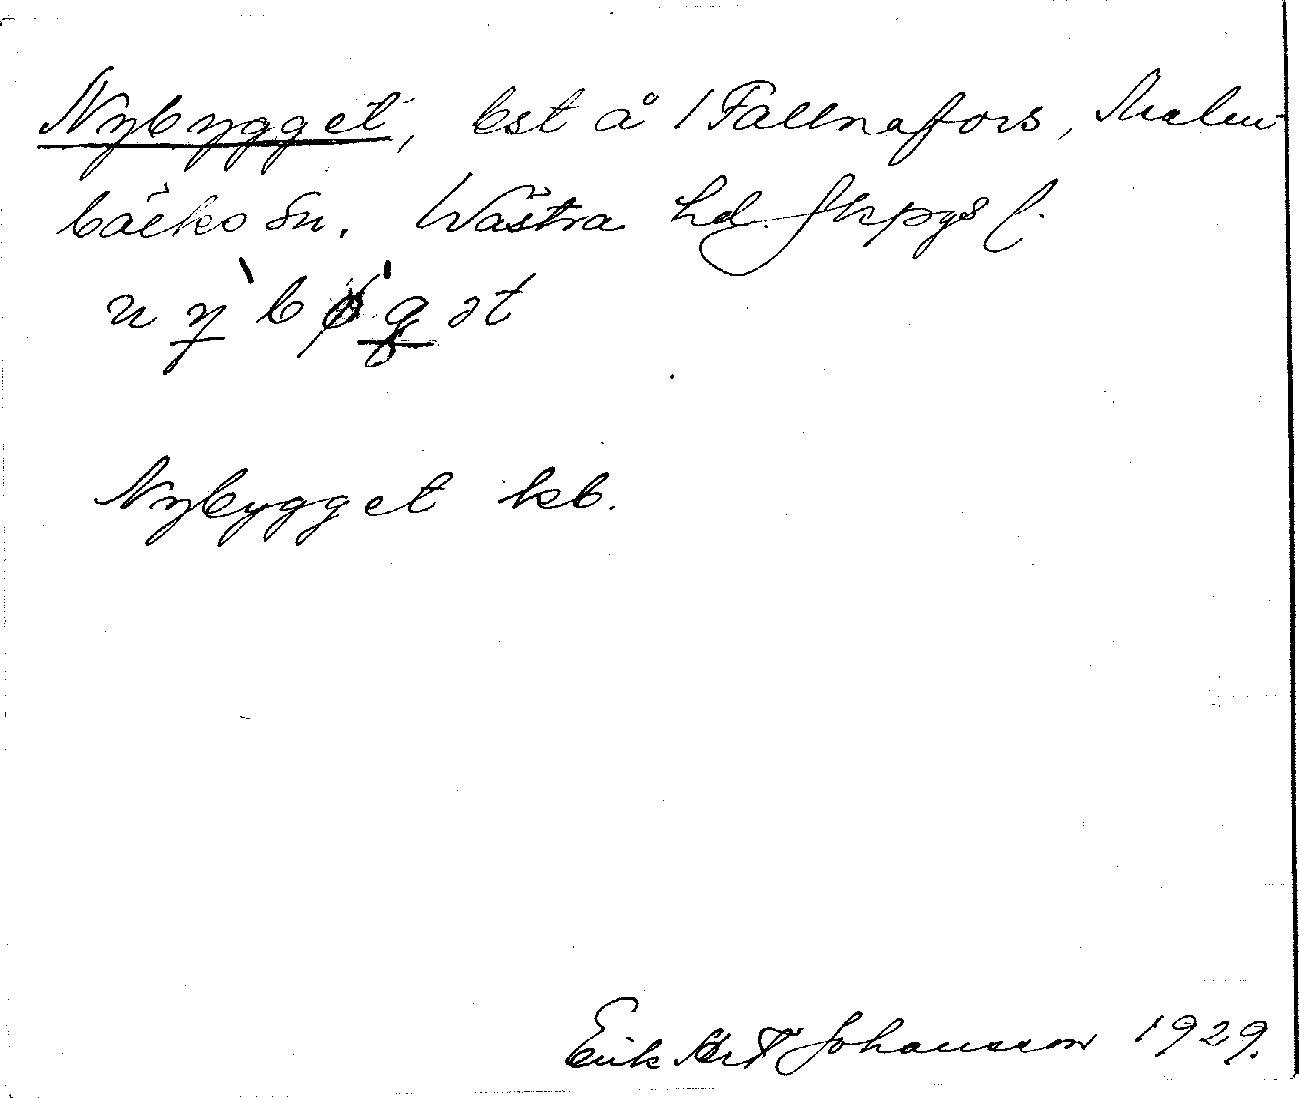 Nybygget, lst å 1 Fallnafors, Malm-
bäcks sn. Västra hd Jkpgs l.
Nybygget kb.
Erik Art Johansson 1929.